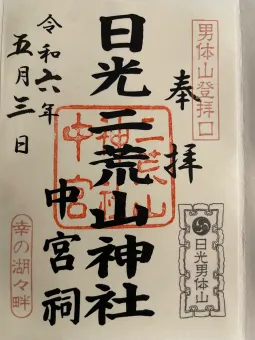 男体山登拝口
奉拝
日光二荒山神社
中宮祠
令和六年
五月三日
日光男体山
幸の湖々畔